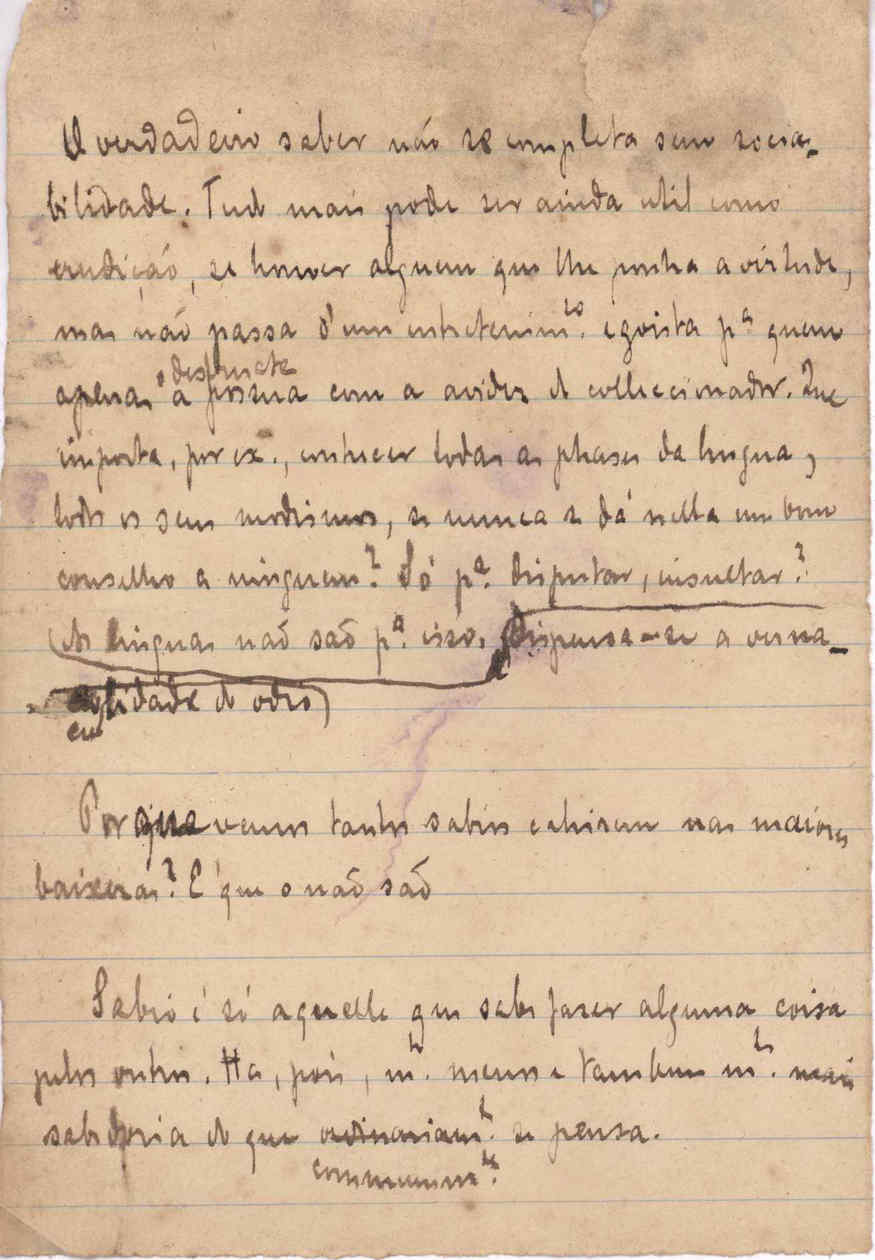 O verdadeiro saber não se completa sem socia-
bilidade. Tudo mais pode ser ainda util como
erudição, se houver alguem que lhe ponha a virtude,
mas não passa d'um entretenim.to egoista p.a quem
desfructe
apenas a possua com a avidez de colleccionador. Que
importa, por ex., conhecer todas as phases da lingua,
todos os seus modismos, se nunca se dá nella um bom
conselho a ninguem? Só p.a disputar, insultar?
(As linguas naõ saõ p.a isso. Dispensa-se a verna-
culidade do odio)
cu
Porque vemos tantos sabios cahirem nas maiores
baixezas? É que o naõ saõ
Sabio é só aquelle que sabe fazer alguma coisa
pelos outros. Ha, pois, m.to menos e tambem m.to mais
sabedoria do que ordinariam.te se pensa.
communm.te